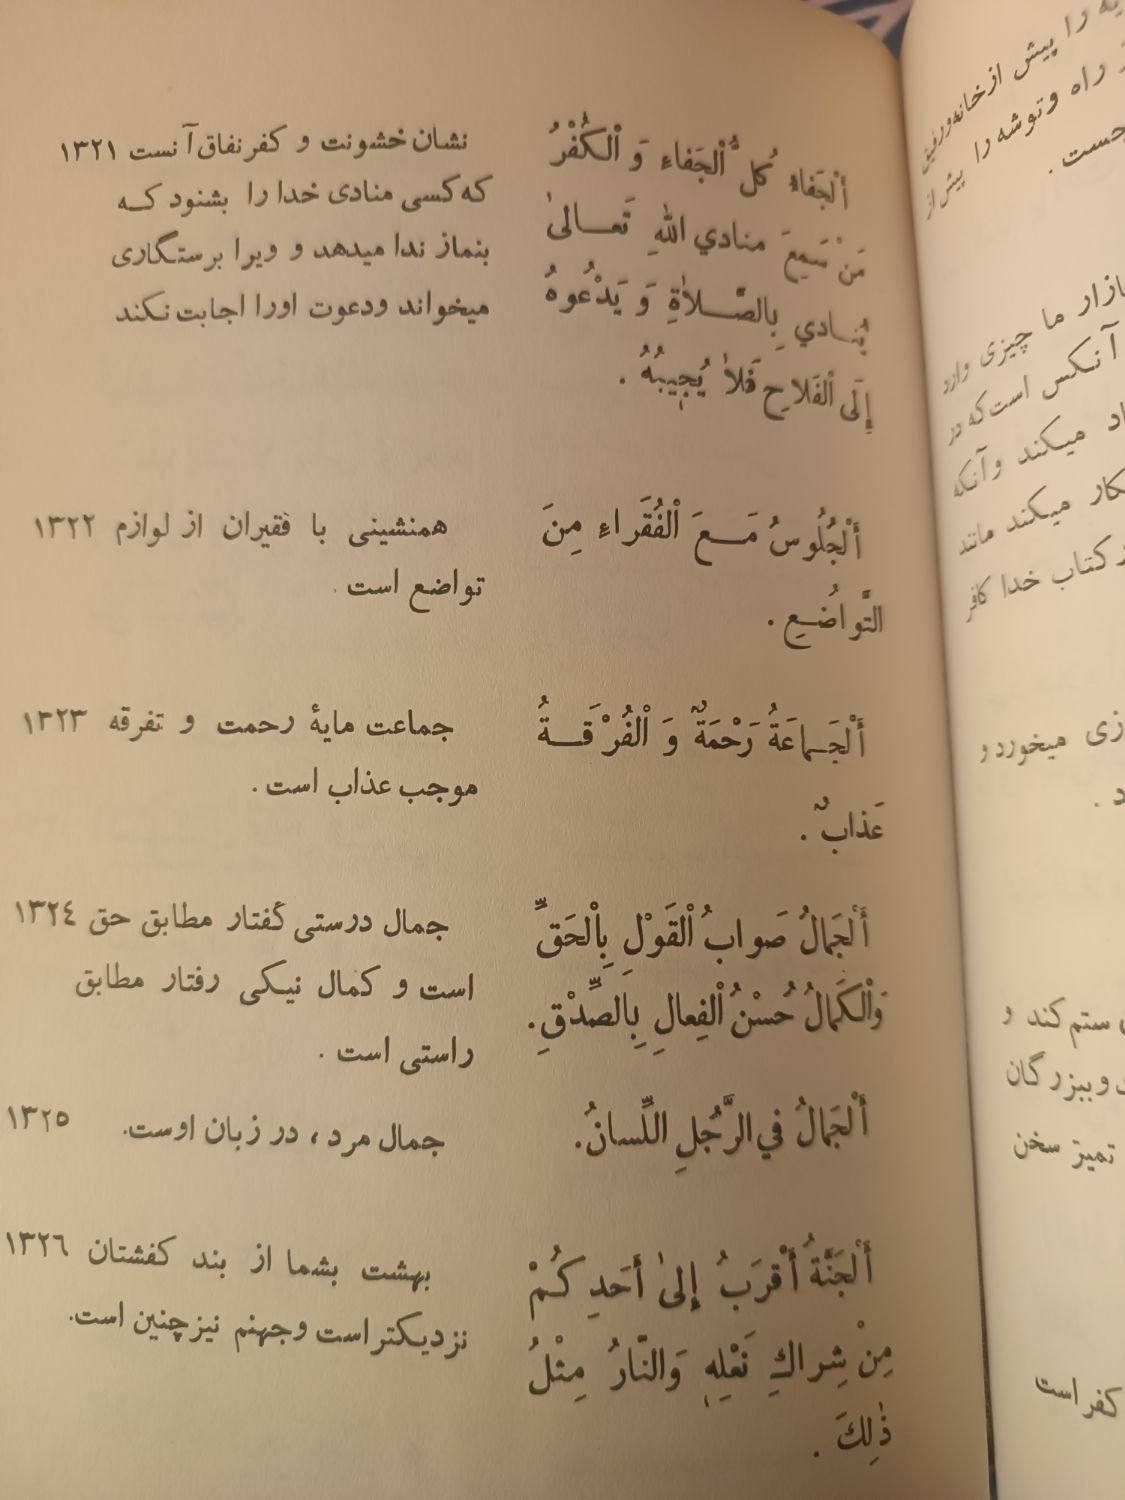 أَلْجَفاءُ كُلُّ الْجَفاءِ وَ الْكُفْرُ
مَنْ سَمِعَ مناديَ اللهِ تَعالىٰ
يُنادي بِالصَّلاٰةِ وَ يَدْعُوهُ
إِلَى الْفَلاحِ فَلاٰ يُجيبُهُ .
نشان خشونت و کفر نفاق آنست ١٣٢١
که کسی منادی خدا را بشنود که
بنماز ندا میدهد و ویرا برستگاری
میخواند ودعوت اورا اجابت نکند
أَلْجُلُوسُ مَعَ الْفُقَراءِ مِنَ
التَّواضُعِ .
همنشینی با فقیران از لوازم ١٣٢٢
تواضع است .
أَلْجَماعَةُ رَحْمَةٌ وَ الْفُرْقَةُ
عَذابٌ .
جماعت مایهٔ رحمت و تفرقه ١٣٢٣
موجب عذاب است .
أَلْجَمالُ صَوابُ الْقَوْلِ بِالْحَقِّ
وَالْكَمالُ حُسْنُ الْفِعالِ بِالصِّدْقِ.
جمال درستی گفتار مطابق حق ١٣٢٤
است و کمال نیکی رفتار مطابق
راستی است .
أَلْجَمالُ فِي الرَّجُلِ اللِّسانُ.
جمال مرد ، در زبان اوست. ١٣٢٥
أَلْجَنَّةُ أَقْرَبُ إِلىٰ أَحَدِ كُمْ
مِنْ شِراكِ نَعْلِهِ وَالنّارُ مِثْلُ
ذٰلِكَ .
بهشت بشما از بند کفشتان ١٣٢٦
نزدیکتر است وجهنم نیز چنین است.
را پیش از خانه ورفیق
راه وتوشه را پیش از
بازار ما چیزی وارد
آنکس است که در
میکند وآنکه
میکند مانند
کتاب خدا کافر
میخورد و
ستم کند و
وببزرگان
تمیز سخن
کفر است